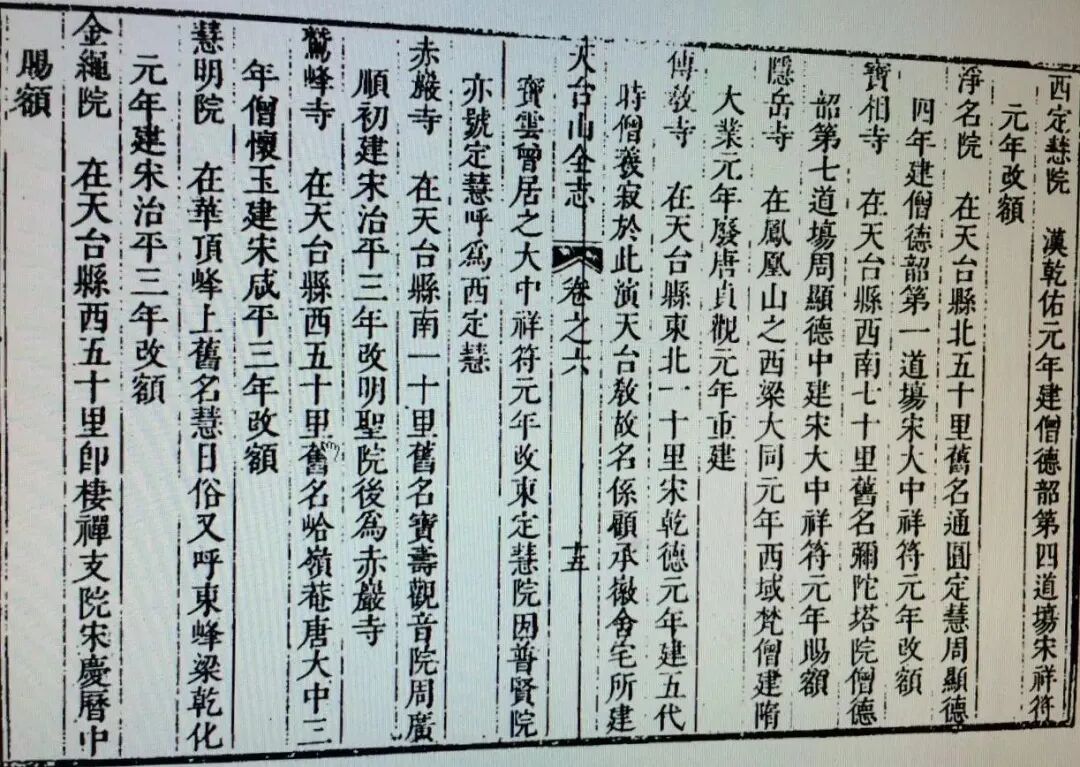 西定慧院　漢乾佑元年建僧德韶第四道場宋祥符
元年改額
淨名院　在天台縣北五十里舊名通圓定慧周顯德
四年建僧德韶第一道場宋大中祥符元年改額
寶相寺　在天台縣西南七十里舊名彌陀塔院僧德
韶第七道場周顯德中建宋大中祥符元年賜額
隱岳寺　在鳳凰山之西梁大同元年西域梵僧建隋
大業元年廢唐貞觀元年重建
傳敎寺　在天台縣東北一十里宋乾德元年建五代
時僧羲寂於此演天台敎故名係顧承徽舍宅所建
天台山全志　卷之六　十五
寶雲曾居之大中祥符元年改東定慧院因普賢院
亦號定慧呼爲西定慧
赤巖寺　在天台縣南一十里舊名寶壽觀音院周廣
順初建宋治平三年改明聖院後爲赤巖寺
鷲峰寺　在天台縣西五十里舊名峆嶺菴唐大中三
年僧懷玉建宋咸平三年改額
慧明院　在華頂峰上舊名慧日俗又呼東峰梁乾化
元年建宋治平三年改額
金繩院　在天台縣西五十里卽棲禪支院宋慶曆中
賜額